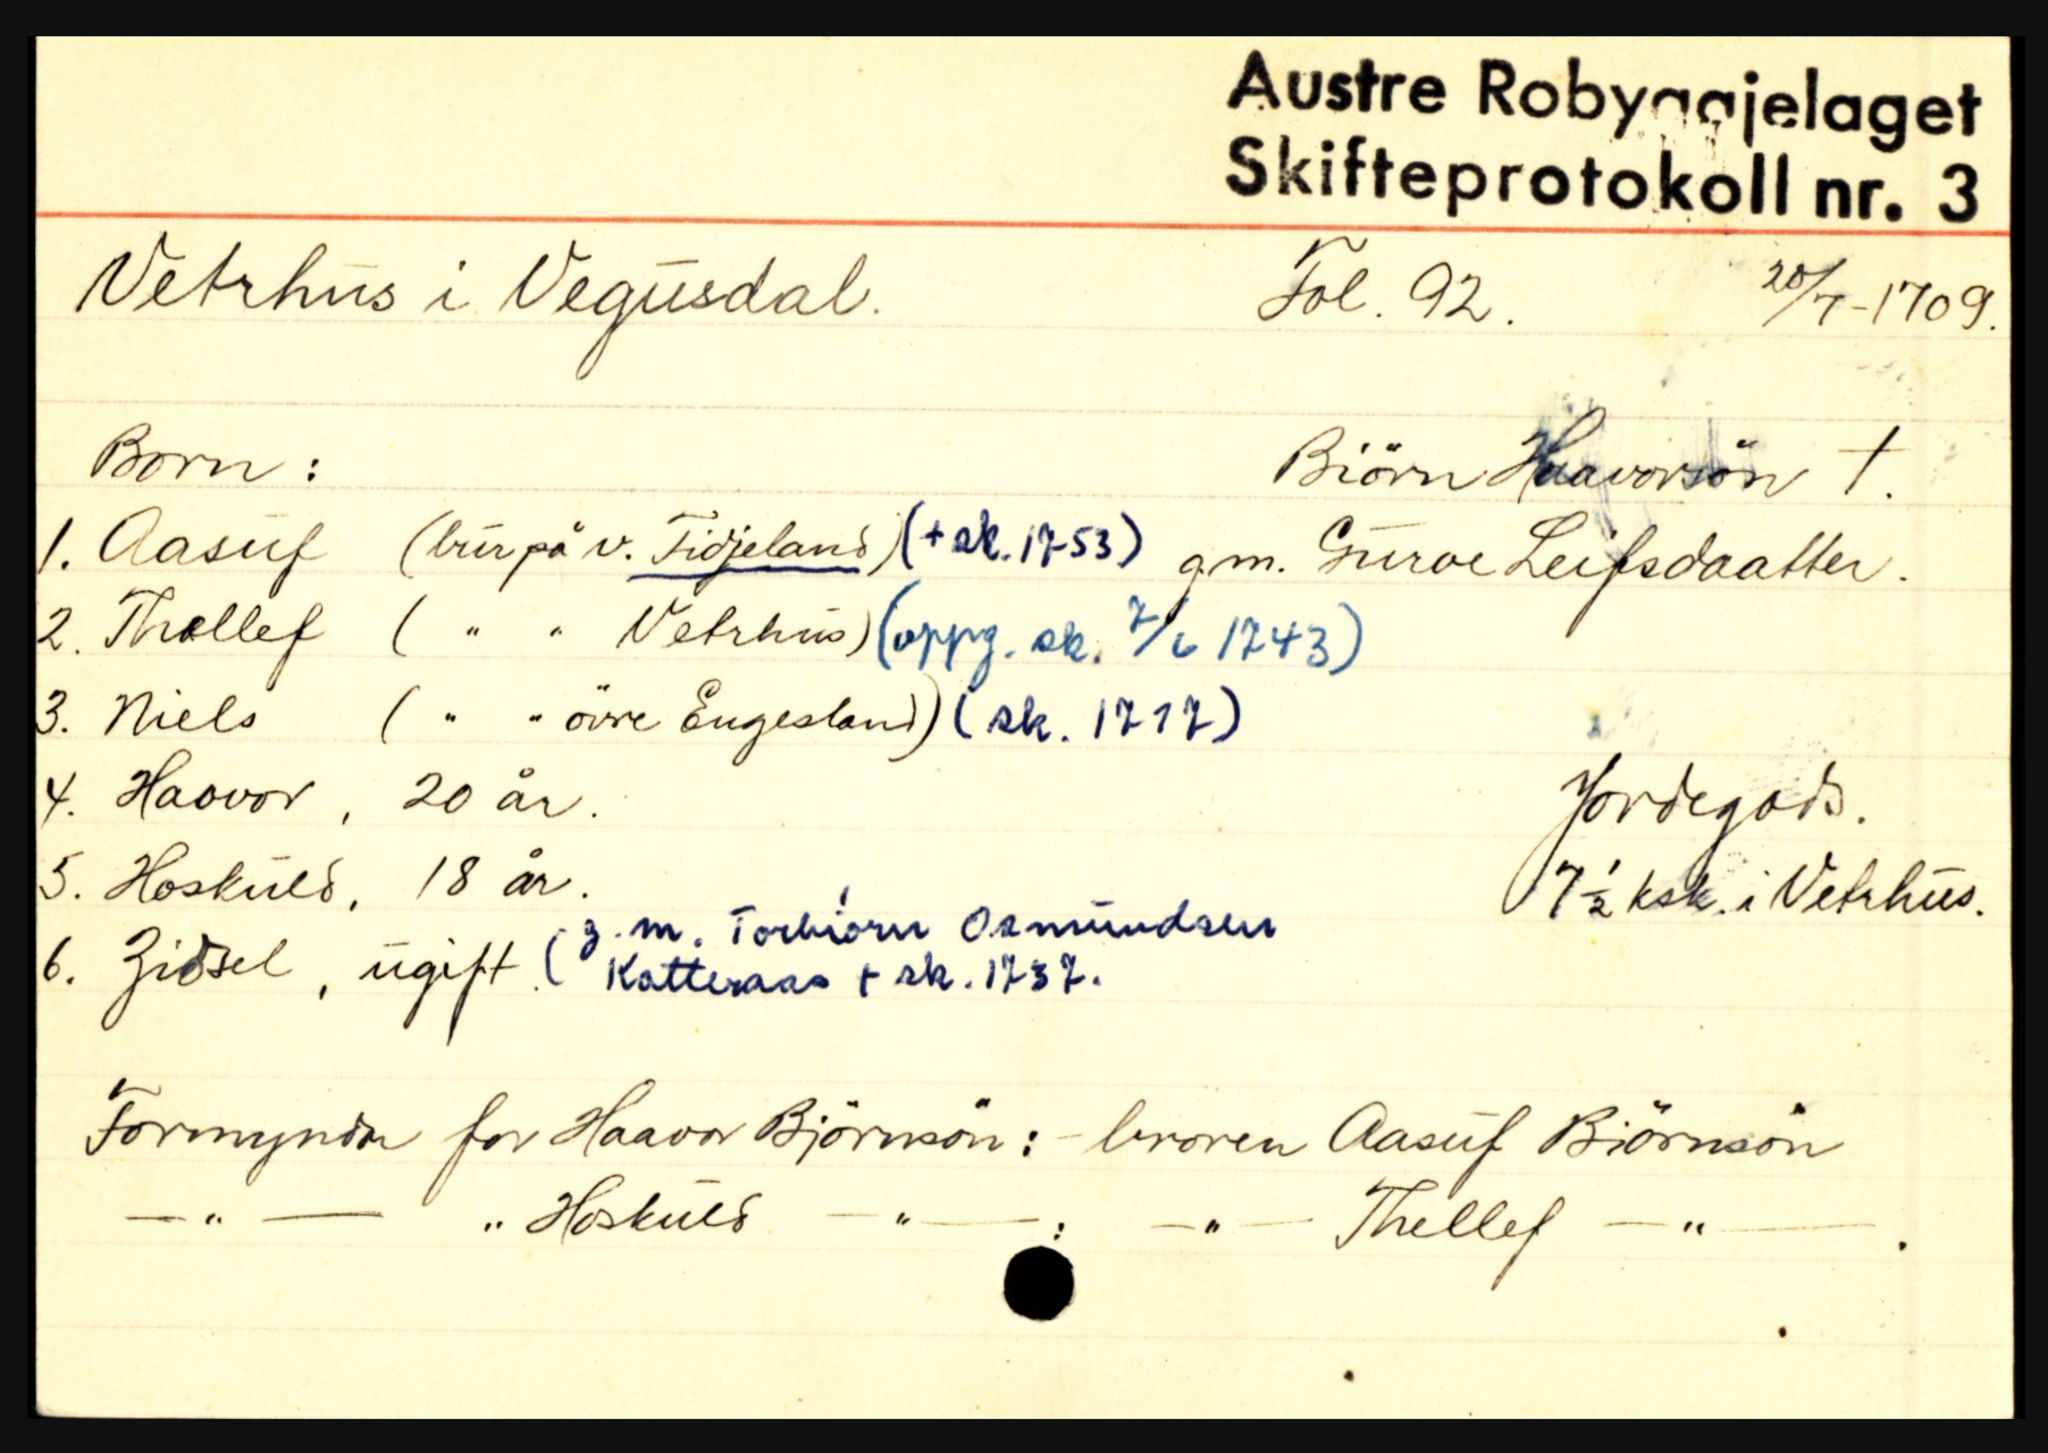 Austre Robyggjelaget
Skifteprotokoll nr. 3
Vetrhus i Vegusdal. Fol. 92. 20/7-1709.
Born: Biörn Haavorsön †.
1. Aasuf (bur på v. Tidjeland) (+ sk. 1753) gm. Guroe Leifsdaatter.
2. Thellef ( " " Vetrhus) (oppg. sk. 7/6 1743)
3. Niels ( " " övre Engesland) (sk. 1717)
4. Haavor, 20 år. Jordegods.
5. Hoskuld, 18 år. 7 1/2 ksk. i Vetrhus.
6. Zidsel, ugift. (g.m. Torbiörn Osmundsen
Katteraas + sk. 1737.
Formyndar for Haavor Björnsön: - broren Aasuf Biörnsön
— " — " Hoskuld — " —: — " — Thellef — " —.